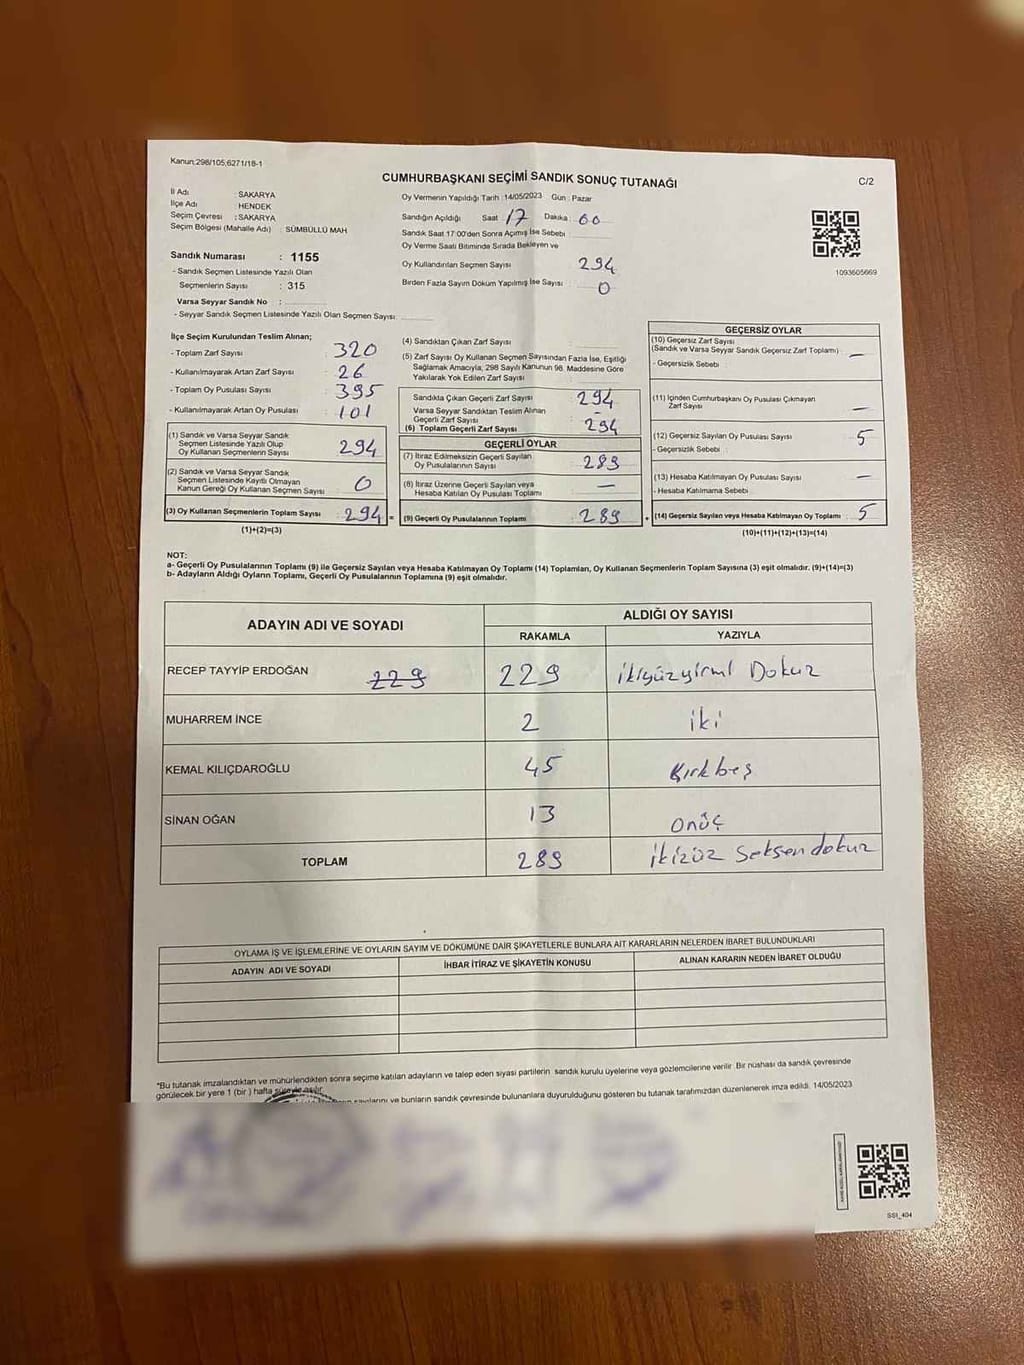 Kanun:298/105;6271/18-1
CUMHURBAŞKANI SEÇİMİ SANDIK SONUÇ TUTANAĞI
C/2
İl Adı : SAKARYA
İlçe Adı : HENDEK
Seçim Çevresi : SAKARYA
Seçim Bölgesi (Mahalle Adı) : SÜMBÜLLÜ MAH
Sandık Numarası : 1155
- Sandık Seçmen Listesinde Yazılı Olan
Seçmenlerin Sayısı : 315
Varsa Seyyar Sandık No :
- Seyyar Sandık Seçmen Listesinde Yazılı Olan Seçmen Sayısı:
Oy Vermenin Yapıldığı Tarih :14/05/2023 Gün : Pazar
Sandığın Açıldığı Saat : 17 Dakika : 00
Sandık Saat 17:00'den Sonra Açılmış İse Sebebi :
Oy Verme Saati Bitiminde Sırada Bekleyen ve
Oy Kullandırılan Seçmen Sayısı 294
Birden Fazla Sayım Döküm Yapılmış İse Sayısı : 0
1093605669
İlçe Seçim Kurulundan Teslim Alınan;
- Toplam Zarf Sayısı : 320
- Kullanılmayarak Artan Zarf Sayısı : 26
- Toplam Oy Pusulası Sayısı : 395
- Kullanılmayarak Artan Oy Pusulası : 101
(1) Sandık ve Varsa Seyyar Sandık
Seçmen Listesinde Yazılı Olup
Oy Kullanan Seçmenlerin Sayısı : 294
(2) Sandık ve Varsa Seyyar Sandık
Seçmen Listesinde Kayıtlı Olmayan
Kanun Gereği Oy Kullanan Seçmen Sayısı : 0
(3) Oy Kullanan Seçmenlerin Toplam Sayısı : 294 =
(1)+(2)=(3)
(4) Sandıktan Çıkan Zarf Sayısı :
(5) Zarf Sayısı Oy Kullanan Seçmen Sayısından Fazla İse, Eşitliği
Sağlamak Amacıyla; 298 Sayılı Kanunun 98. Maddesine Göre
Yakılarak Yok Edilen Zarf Sayısı :
Sandıkta Çıkan Geçerli Zarf Sayısı : 294
Varsa Seyyar Sandıktan Teslim Alınan
Geçerli Zarf Sayısı : -
(6) Toplam Geçerli Zarf Sayısı : 294
GEÇERLİ OYLAR
(7) İtiraz Edilmeksizin Geçerli Sayılan
Oy Pusulalarının Sayısı : 289
(8) İtiraz Üzerine Geçerli Sayılan veya
Hesaba Katılan Oy Pusulası Toplamı : —
(9) Geçerli Oy Pusulalarının Toplamı : 289 +
GEÇERSİZ OYLAR
(10) Geçersiz Zarf Sayısı
(Sandık ve Varsa Seyyar Sandık Geçersiz Zarf Toplamı) : —
- Geçersizlik Sebebi :
(11) İçinden Cumhurbaşkanı Oy Pusulası Çıkmayan
Zarf Sayısı : —
(12) Geçersiz Sayılan Oy Pusulası Sayısı : 5
- Geçersizlik Sebebi :
(13) Hesaba Katılmayan Oy Pusulası Sayısı : —
- Hesaba Katılmama Sebebi :
(14) Geçersiz Sayılan veya Hesaba Katılmayan Oy Toplamı : 5
(10)+(11)+(12)+(13)=(14)
NOT:
a- Geçerli Oy Pusulalarının Toplamı (9) ile Geçersiz Sayılan veya Hesaba Katılmayan Oy Toplamı (14) Toplamları, Oy Kullanan Seçmenlerin Toplam Sayısına (3) eşit olmalıdır. (9)+(14)=(3)
b- Adayların Aldığı Oyların Toplamı, Geçerli Oy Pusulalarının Toplamına (9) eşit olmalıdır.
ADAYIN ADI VE SOYADI
ALDIĞI OY SAYISI
RAKAMLA YAZIYLA
RECEP TAYYİP ERDOĞAN 229 229 ikiyüzyirmi Dokuz
MUHARREM İNCE 2 iki
KEMAL KILIÇDAROĞLU 45 Kırkbeş
SİNAN OĞAN 13 onüç
TOPLAM 289 ikizüz seksendokuz
OYLAMA İŞ VE İŞLEMLERİNE VE OYLARIN SAYIM VE DÖKÜMÜNE DAİR ŞİKAYETLERLE BUNLARA AİT KARARLARIN NELERDEN İBARET BULUNDUKLARI
ADAYIN ADI VE SOYADI İHBAR İTİRAZ VE ŞİKAYETİN KONUSU ALINAN KARARIN NEDEN İBARET OLDUĞU
*Bu tutanak imzalandıktan ve mühürlendikten sonra seçime katılan adayların ve talep eden siyasi partilerin sandık kurulu üyelerine veya gözlemcilerine verilir. Bir nüshası da sandık çevresinde
görülecek bir yere 1 (bir ) hafta süreyle asılır.
ve bunların sandık çevresinde bulunanlara duyurulduğunu gösteren bu tutanak tarafımızdan düzenlenerek imza edildi. 14/05/2023
SSI_404